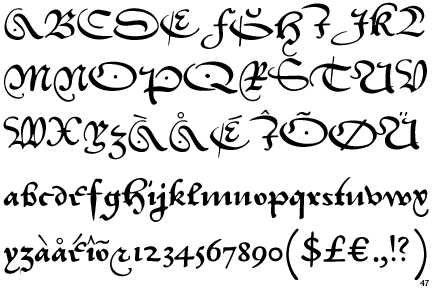 ABCDEFGHIJKL
MNOPQRSTUV
WXYZÀÅÉÎÕØÜ
abcdefghijklmnopqrstuvwx
yzàåéîõø1234567890($£€.,!?)
47